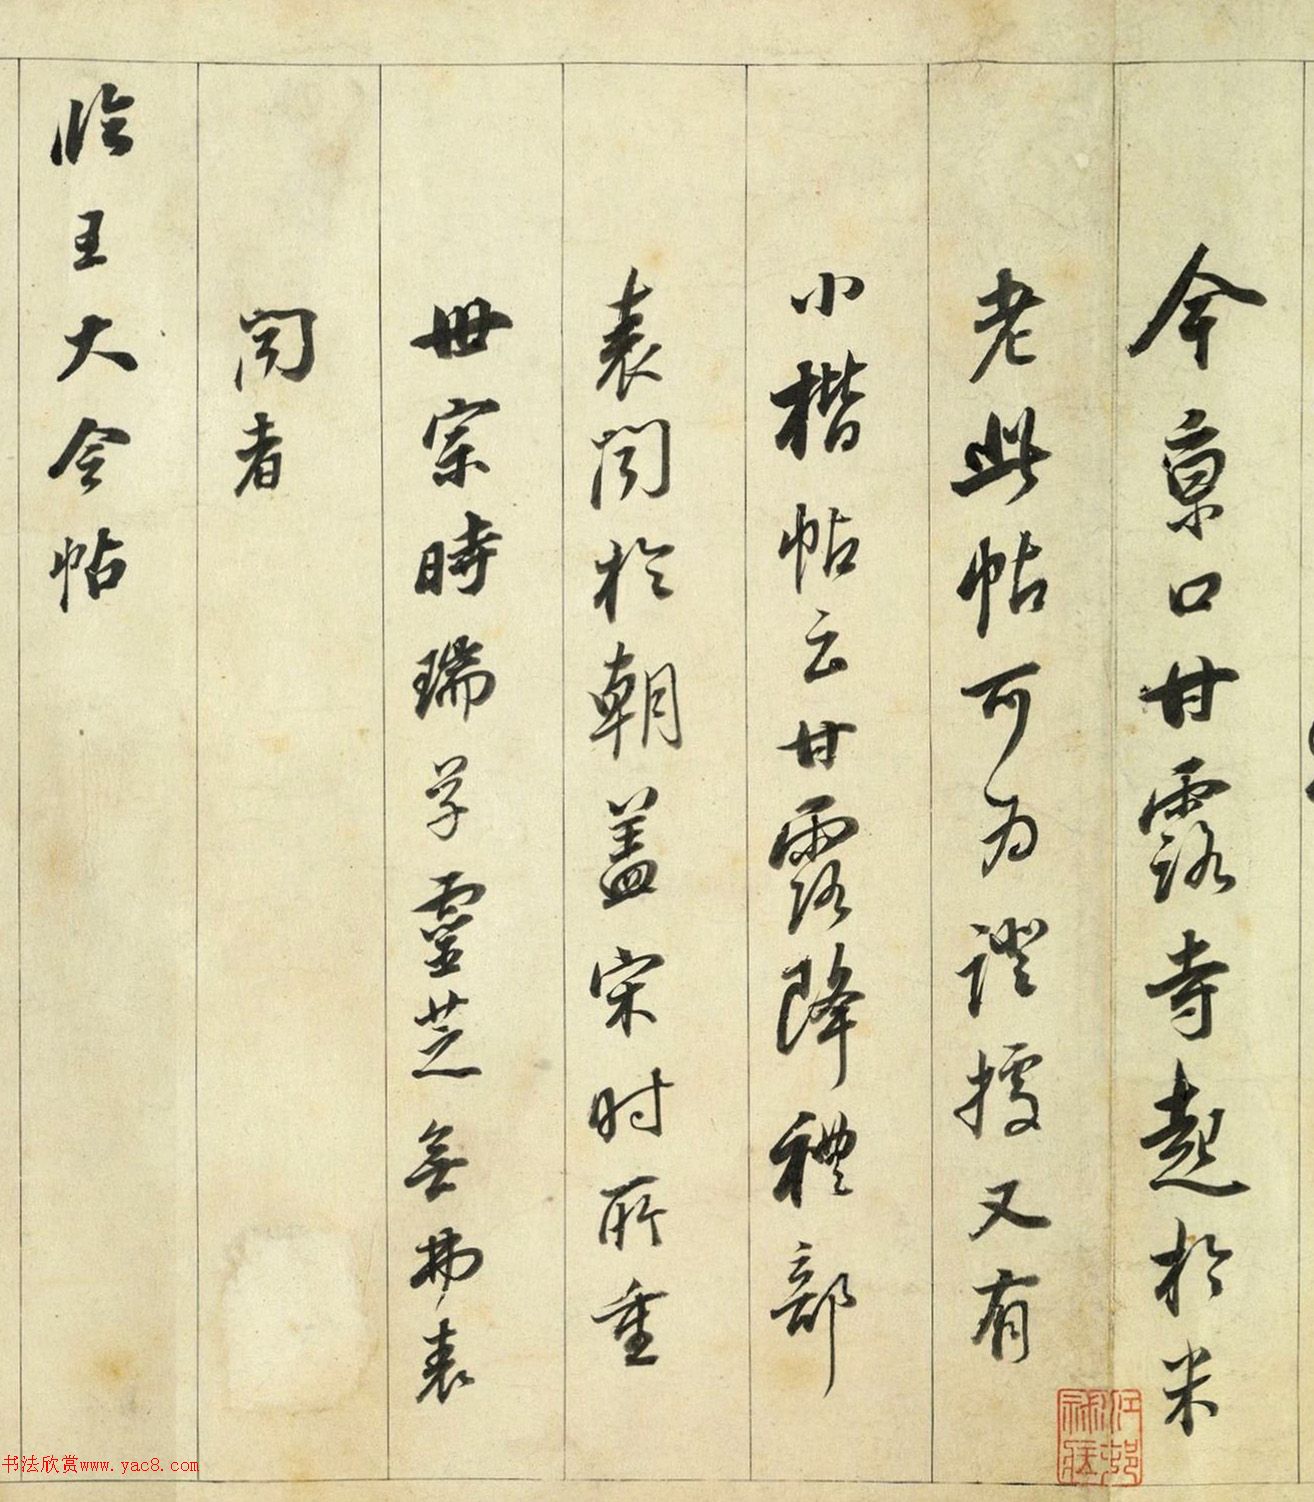 今京口甘露寺起於米
老此帖可为證據又有
小楷帖云甘露降禮部
表闻於朝盖宋时所重
世宗時瑞草靈芝無弗表
闻者
临王大令帖
书法欣赏www.yac8.com